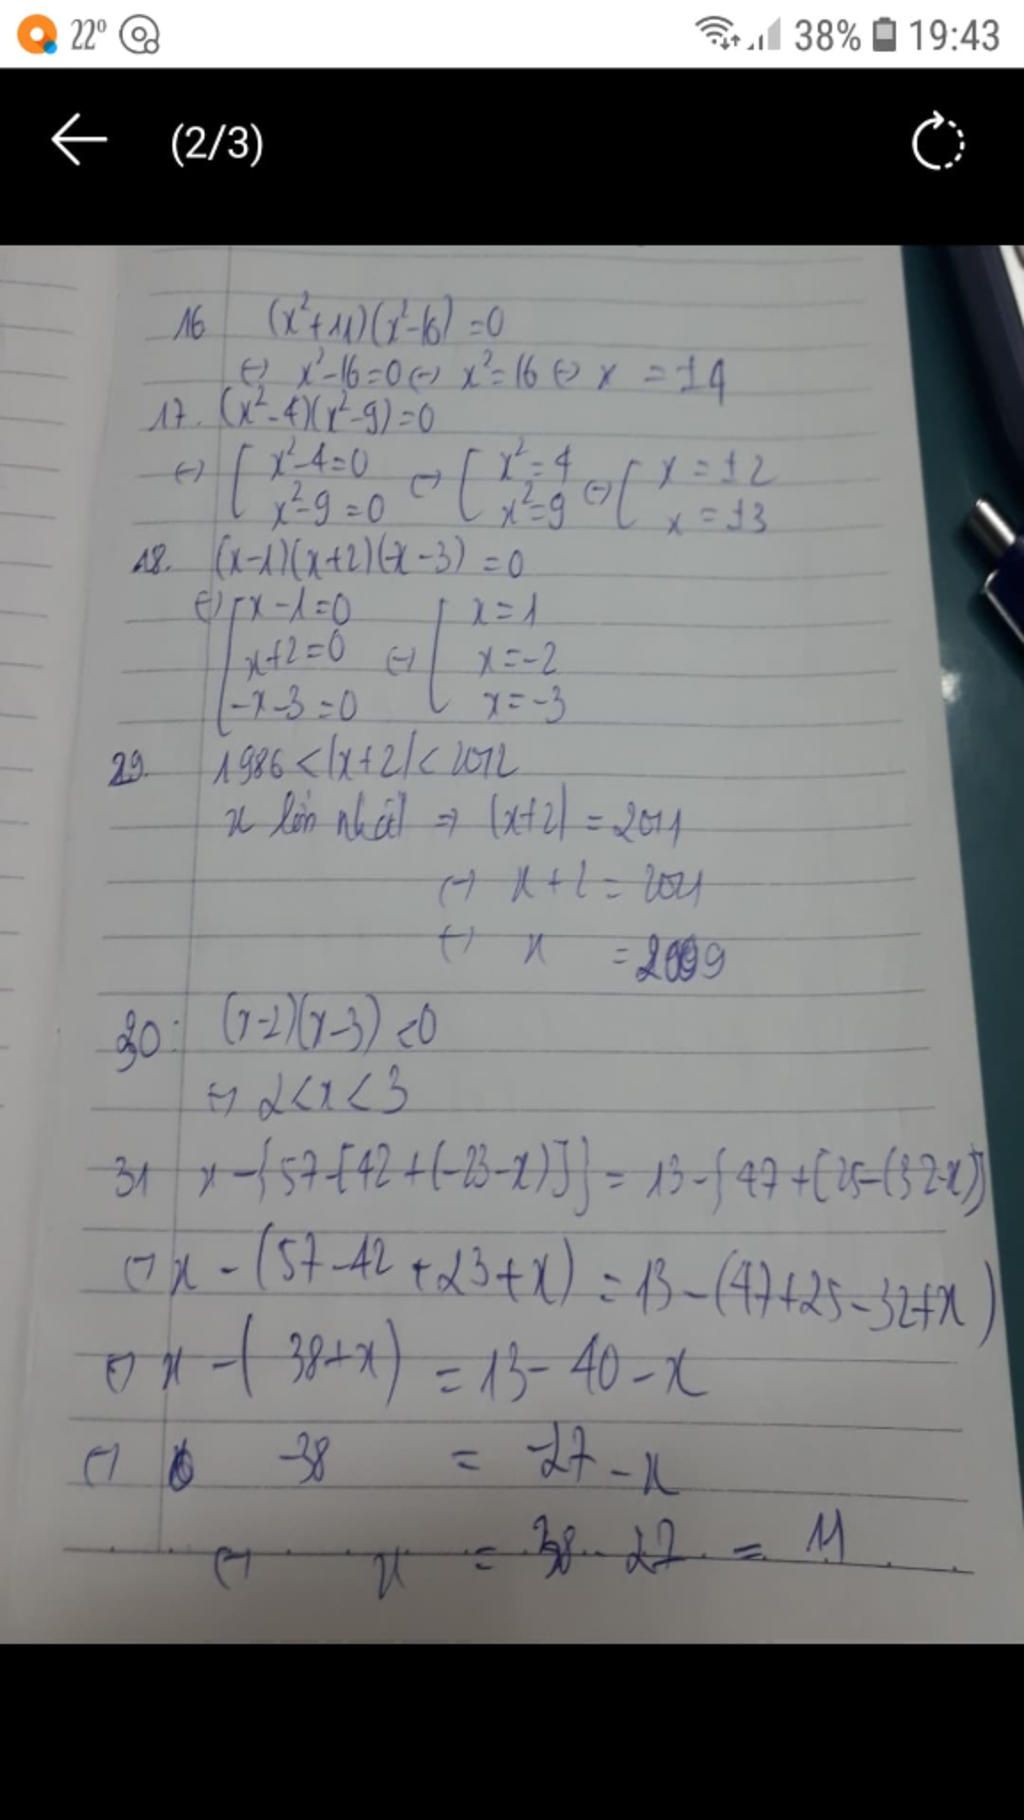 22°
38% 19:43
(2/3)
16 (x²+11)(x²-16)=0
⇔ x²-16=0 ⇔ x²=16 ⇔ x = ±4
17. (x²-4)(x²-9)=0
⇔ [ x²-4=0 ⇔ [ x²=4 ⇔ [ x=±2
x²-9=0 x²=9 x=±3
18. (x-1)(x+2)(-x-3)=0
⇔ [ x-1=0 [ x=1
x+2=0 ⇔ x=-2
-x-3=0 x=-3
29. 1986<|x+2|<2012
x lớn nhất ⇒ |x+2| = 2011
⇔ x+2 = 2011
⇔ x = 2009
30: (x-2)(x-3)<0
⇔ 2<x<3
31 x-{57-[42+(-23-x)]} = 13-{47+[25-(32-x)]
⇔ x-(57-42+23+x) = 13-(47+25-32+x)
⇔ x-(38+x) = 13-40-x
⇔ -38 = -27-x
⇔ x = 38-27 = 11